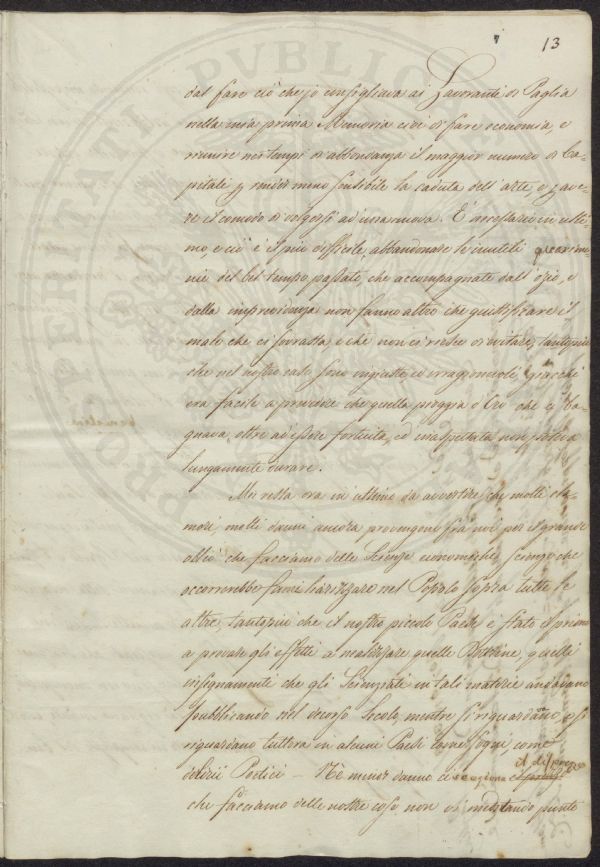 13
dal fare ciò che jo consigliava ai Lavoranti di Paglia
nella mia prima Memoria cioè di fare economia, e
riunire nei tempi di abbondanza il maggior numero di Ca-
pitali p render meno sensibile la caduta dell'arte, e p ave-
re il comodo di volgersi ad una nuova. È necessario in ulti-
mo, e ciò è il più difficile, abbandonare le inutili geremi-
nie del bel tempo passato, che accompagnate dall'ozio, e
dalla imprevidenza non fanno altro che giustificare il
male che ci sovrasta e che non ci riesce di evitare, tantopiù
che nel nostro caso sono ingiuste ed irragionevoli, giacchè
era facile a prevedere che quella pioggia d'Oro che ci ba-
gnava, oltre ad essere fortuita, ed inaspettata non poteva
lungamente durare.
Mi resta ora in ultimo da avvertire che molti cla-
mori, molti danni ancora provengono fra noi per il grande
oblio che facciamo delle Scienze economiche, scienze che
occorrerebbe familiarizzare nel Popolo sopra tutte le
altre, tantopiù che il nostro piccolo Paese è stato il primo
a provare gli effetti a realizzare quelle Dottrine, quelli
insegnamenti che gli Scienziati in tali materie andavano
pubblicando nel decorso Secolo, mentre si riguardavano e si
riguardano tuttora in alcuni Paesi come sogni come
delirii Poetici – Nè minor danno ci cagiona il disprezzo
che facciamo delle nostre cose non rimeditando punto
PROSPERITATI PVBLICAE